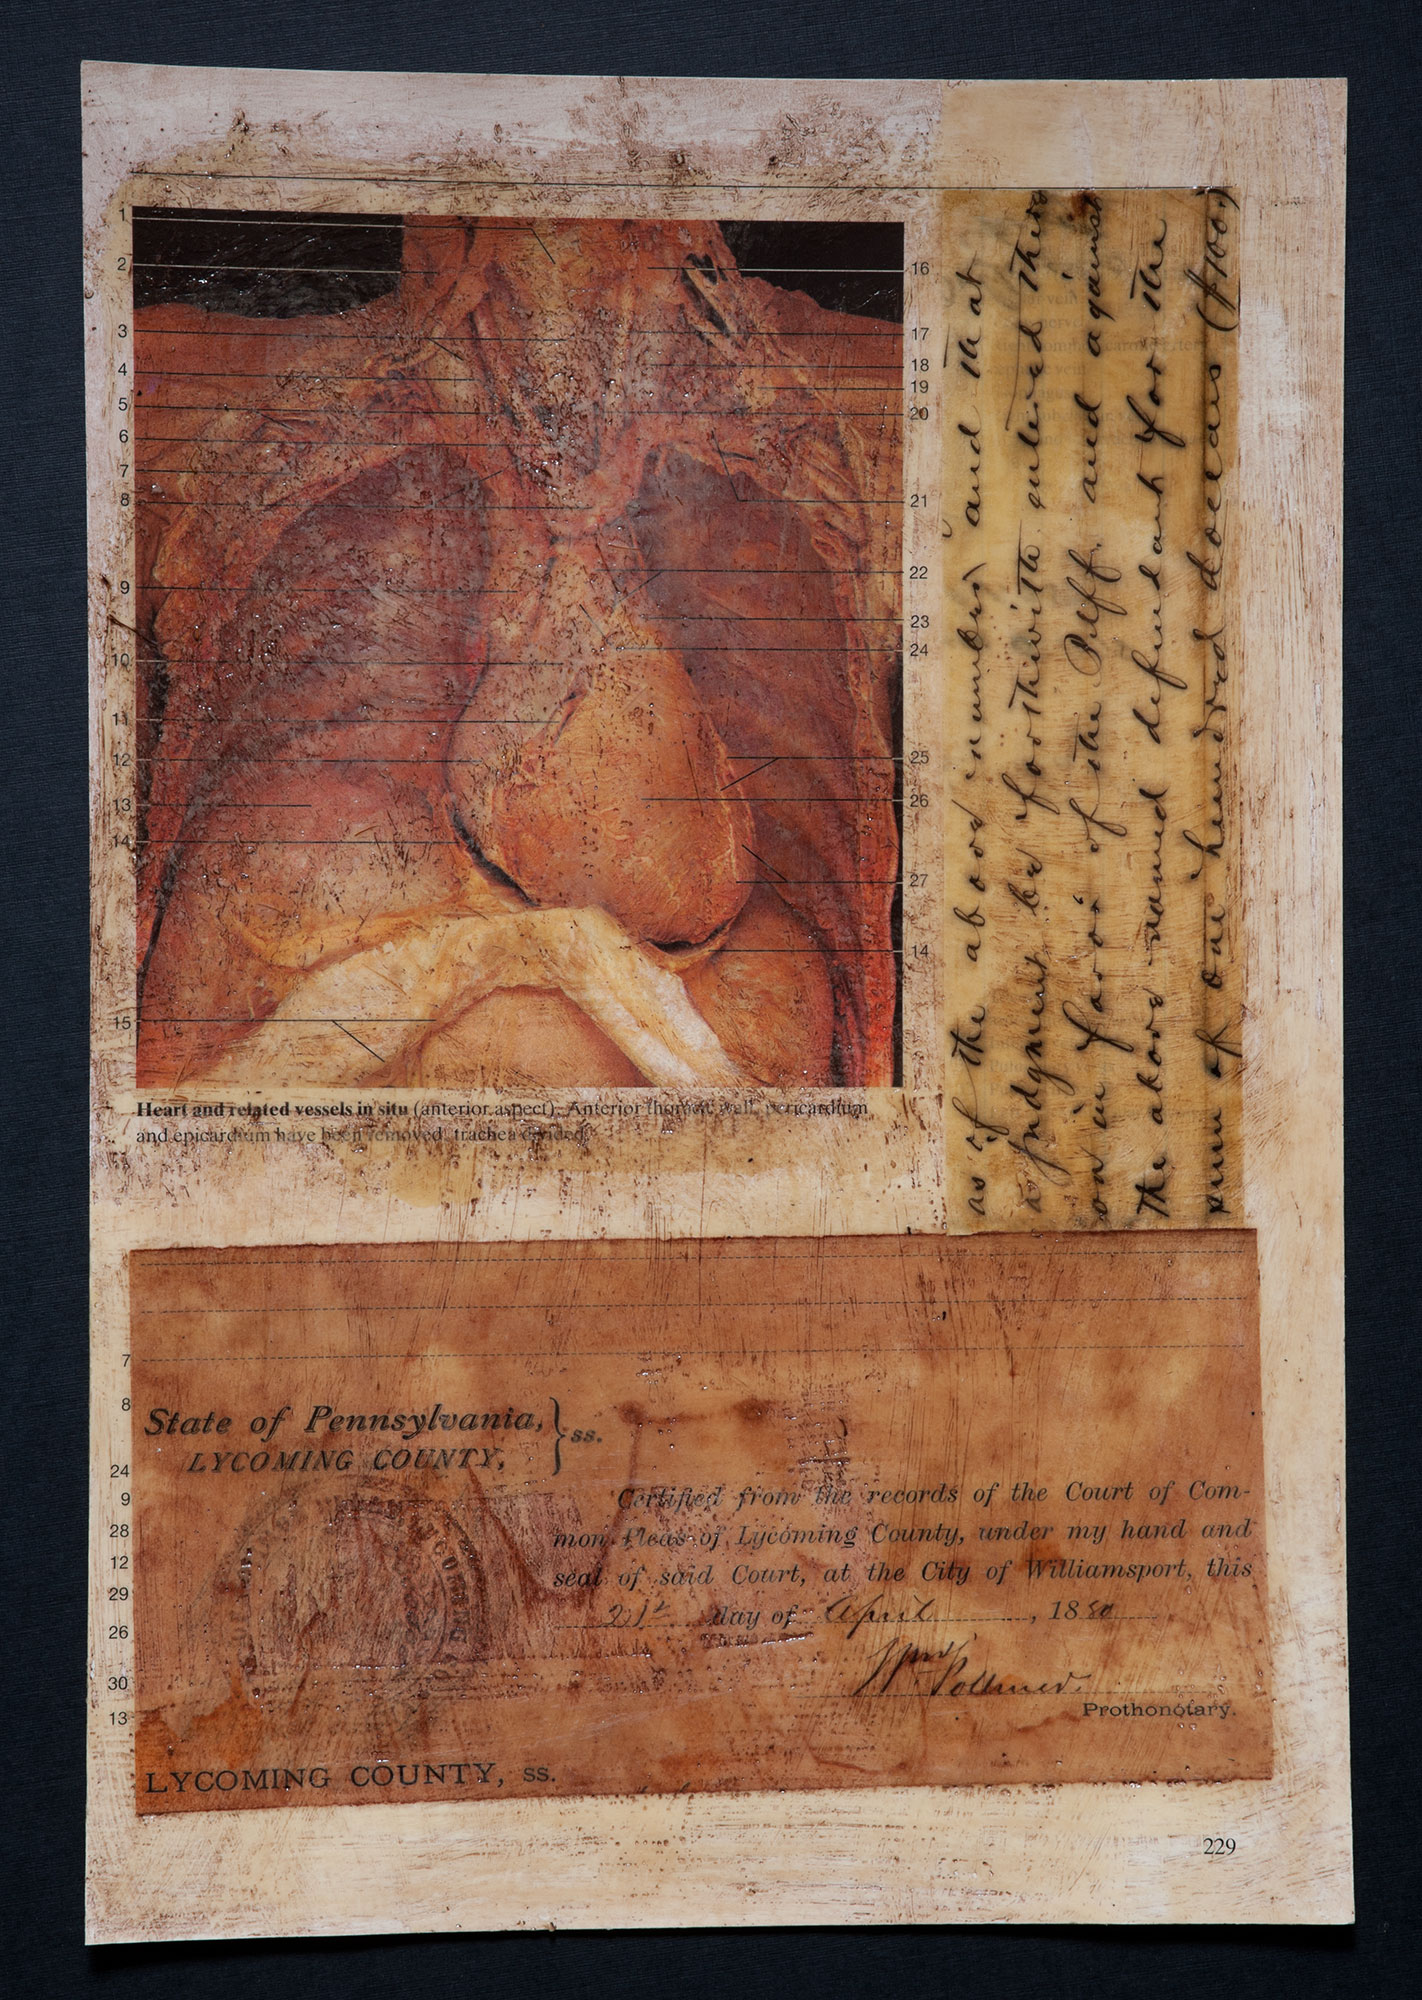 1
2
3
4
5
6
7
8
9
10
11
12
13
14
15
16
17
18
19
20
21
22
23
24
25
26
27
14
Heart and related vessels in situ (anterior aspect). Anterior thoracic wall, pericardium
and epicardium have been removed, trachea divided.
as of the above number and that
a judgment be forthwith entered there
on in favor of the Plff. and against
the above named defendant for the
sum of one hundred dollars ($100.)
7
8
24
9
28
12
29
26
30
13
State of Pennsylvania, } ss.
LYCOMING COUNTY,
Certified from the records of the Court of Com-
mon Pleas of Lycoming County, under my hand and
seal of said Court, at the City of Williamsport, this
21st day of April, 1880
Prothonotary.
LYCOMING COUNTY, ss.
229